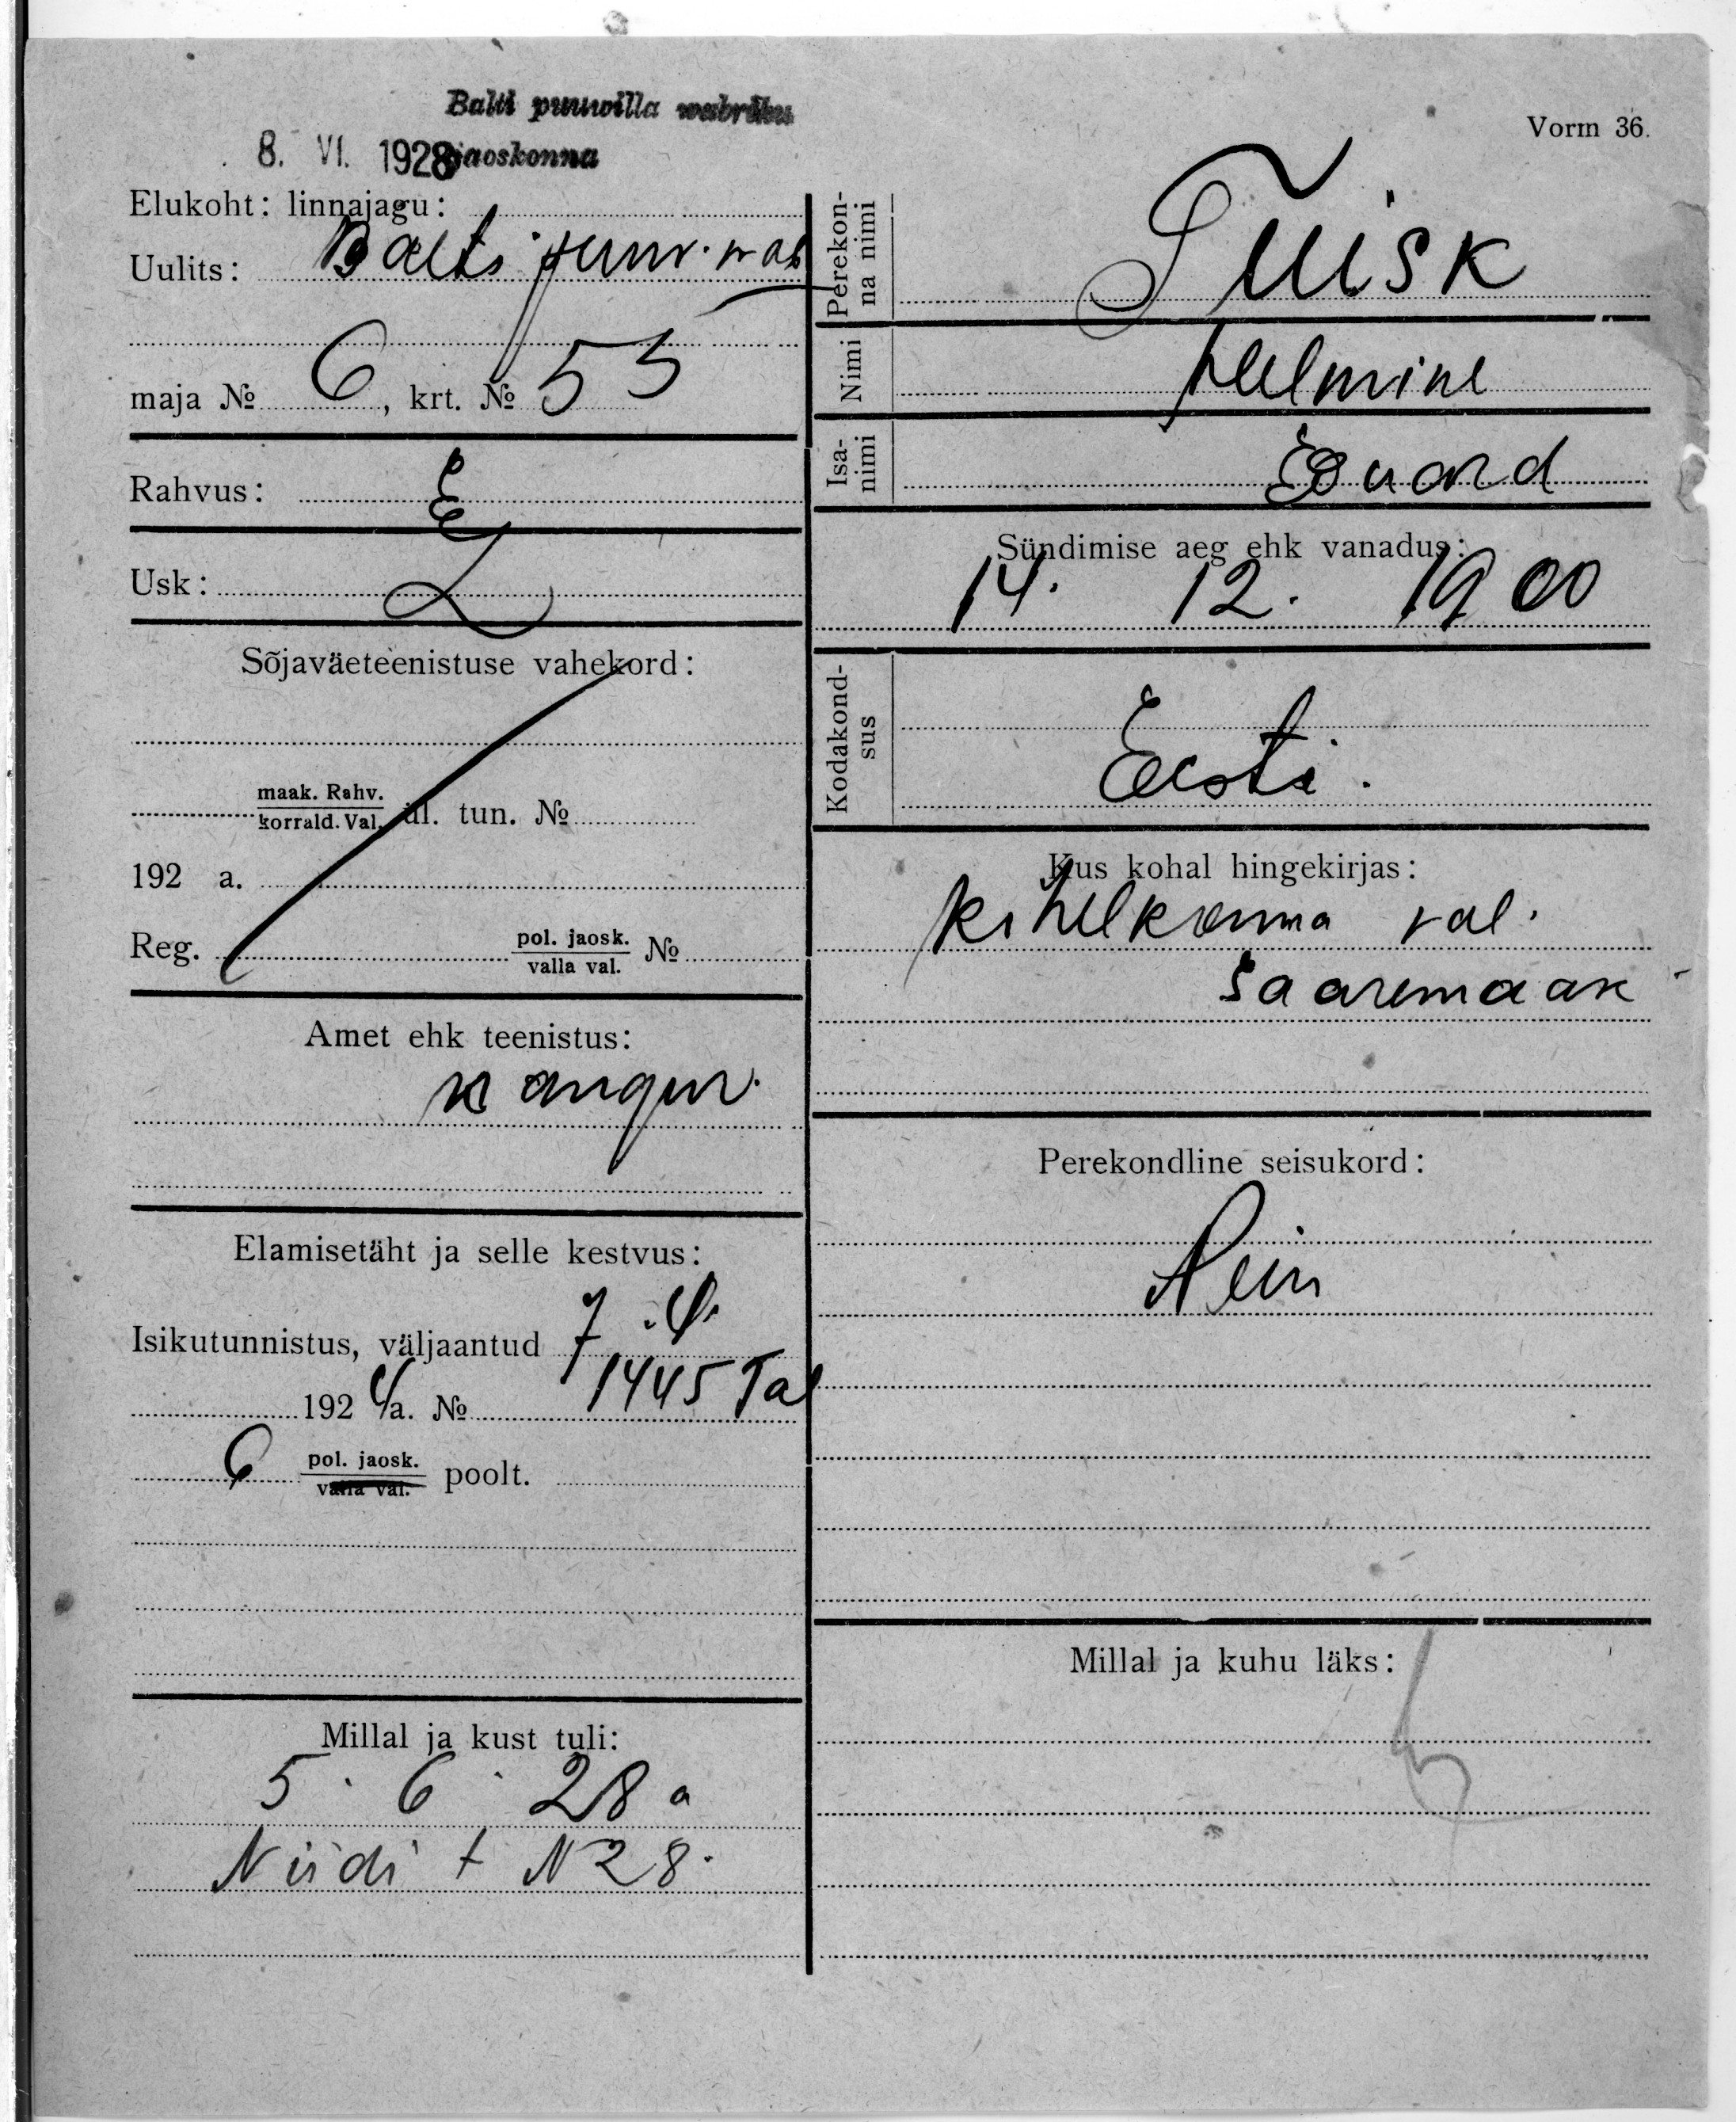 Balti puuvilla wabriku
8. VI. 1928 jaoskonna
Vorm 36.
Elukoht: linnajagu:
Uulits: Balti puuv. wab
maja № 6, krt. № 53
Rahvus: E
Usk: L
Sõjaväeteenistuse vahekord:
maak. Rahv.
korrald. Val. ül. tun. №
192 a.
Reg. pol. jaosk. №
valla val.
Amet ehk teenistus:
kangur.
Elamisetäht ja selle kestvus:
Isikutunnistus, väljaantud 7.
192 a. № 1445 Tal
6 pol. jaosk. poolt.
valla val.
Millal ja kust tuli:
5. 6. 28 a
Niidi t N 28.
Perekonna nimi Tuisk
Nimi Helmine
Isanimi Eduard
Sündimise aeg ehk vanadus:
14. 12. 1900
Kodakondsus
Eesti.
Kus kohal hingekirjas:
Kihelkonna val.
Saaremaak
Perekondline seisukord:
Millal ja kuhu läks: